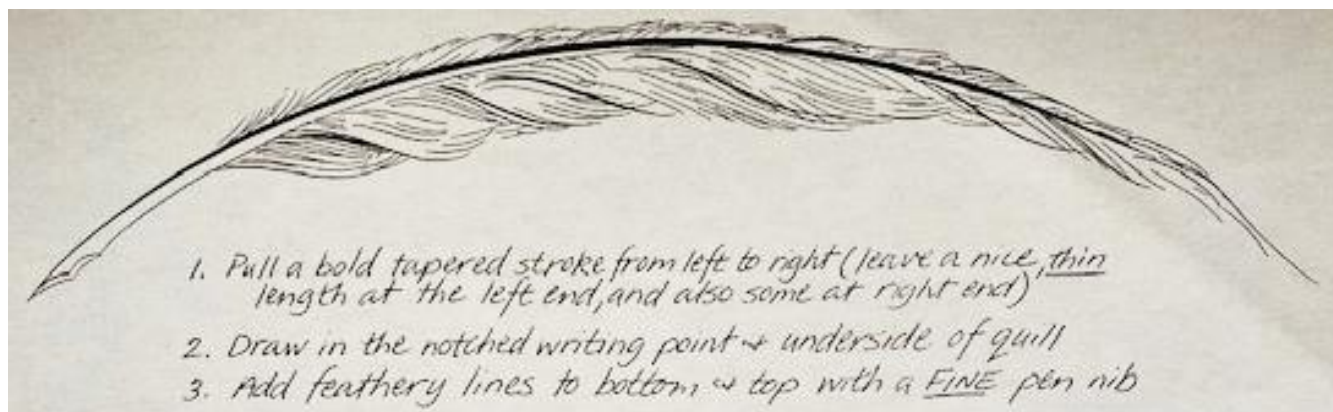 1. Pull a bold tapered stroke from left to right (leave a nice, thin
length at the left end, and also some at right end)
2. Draw in the notched writing point & underside of quill
3. Add feathery lines to bottom & top with a FINE pen nib